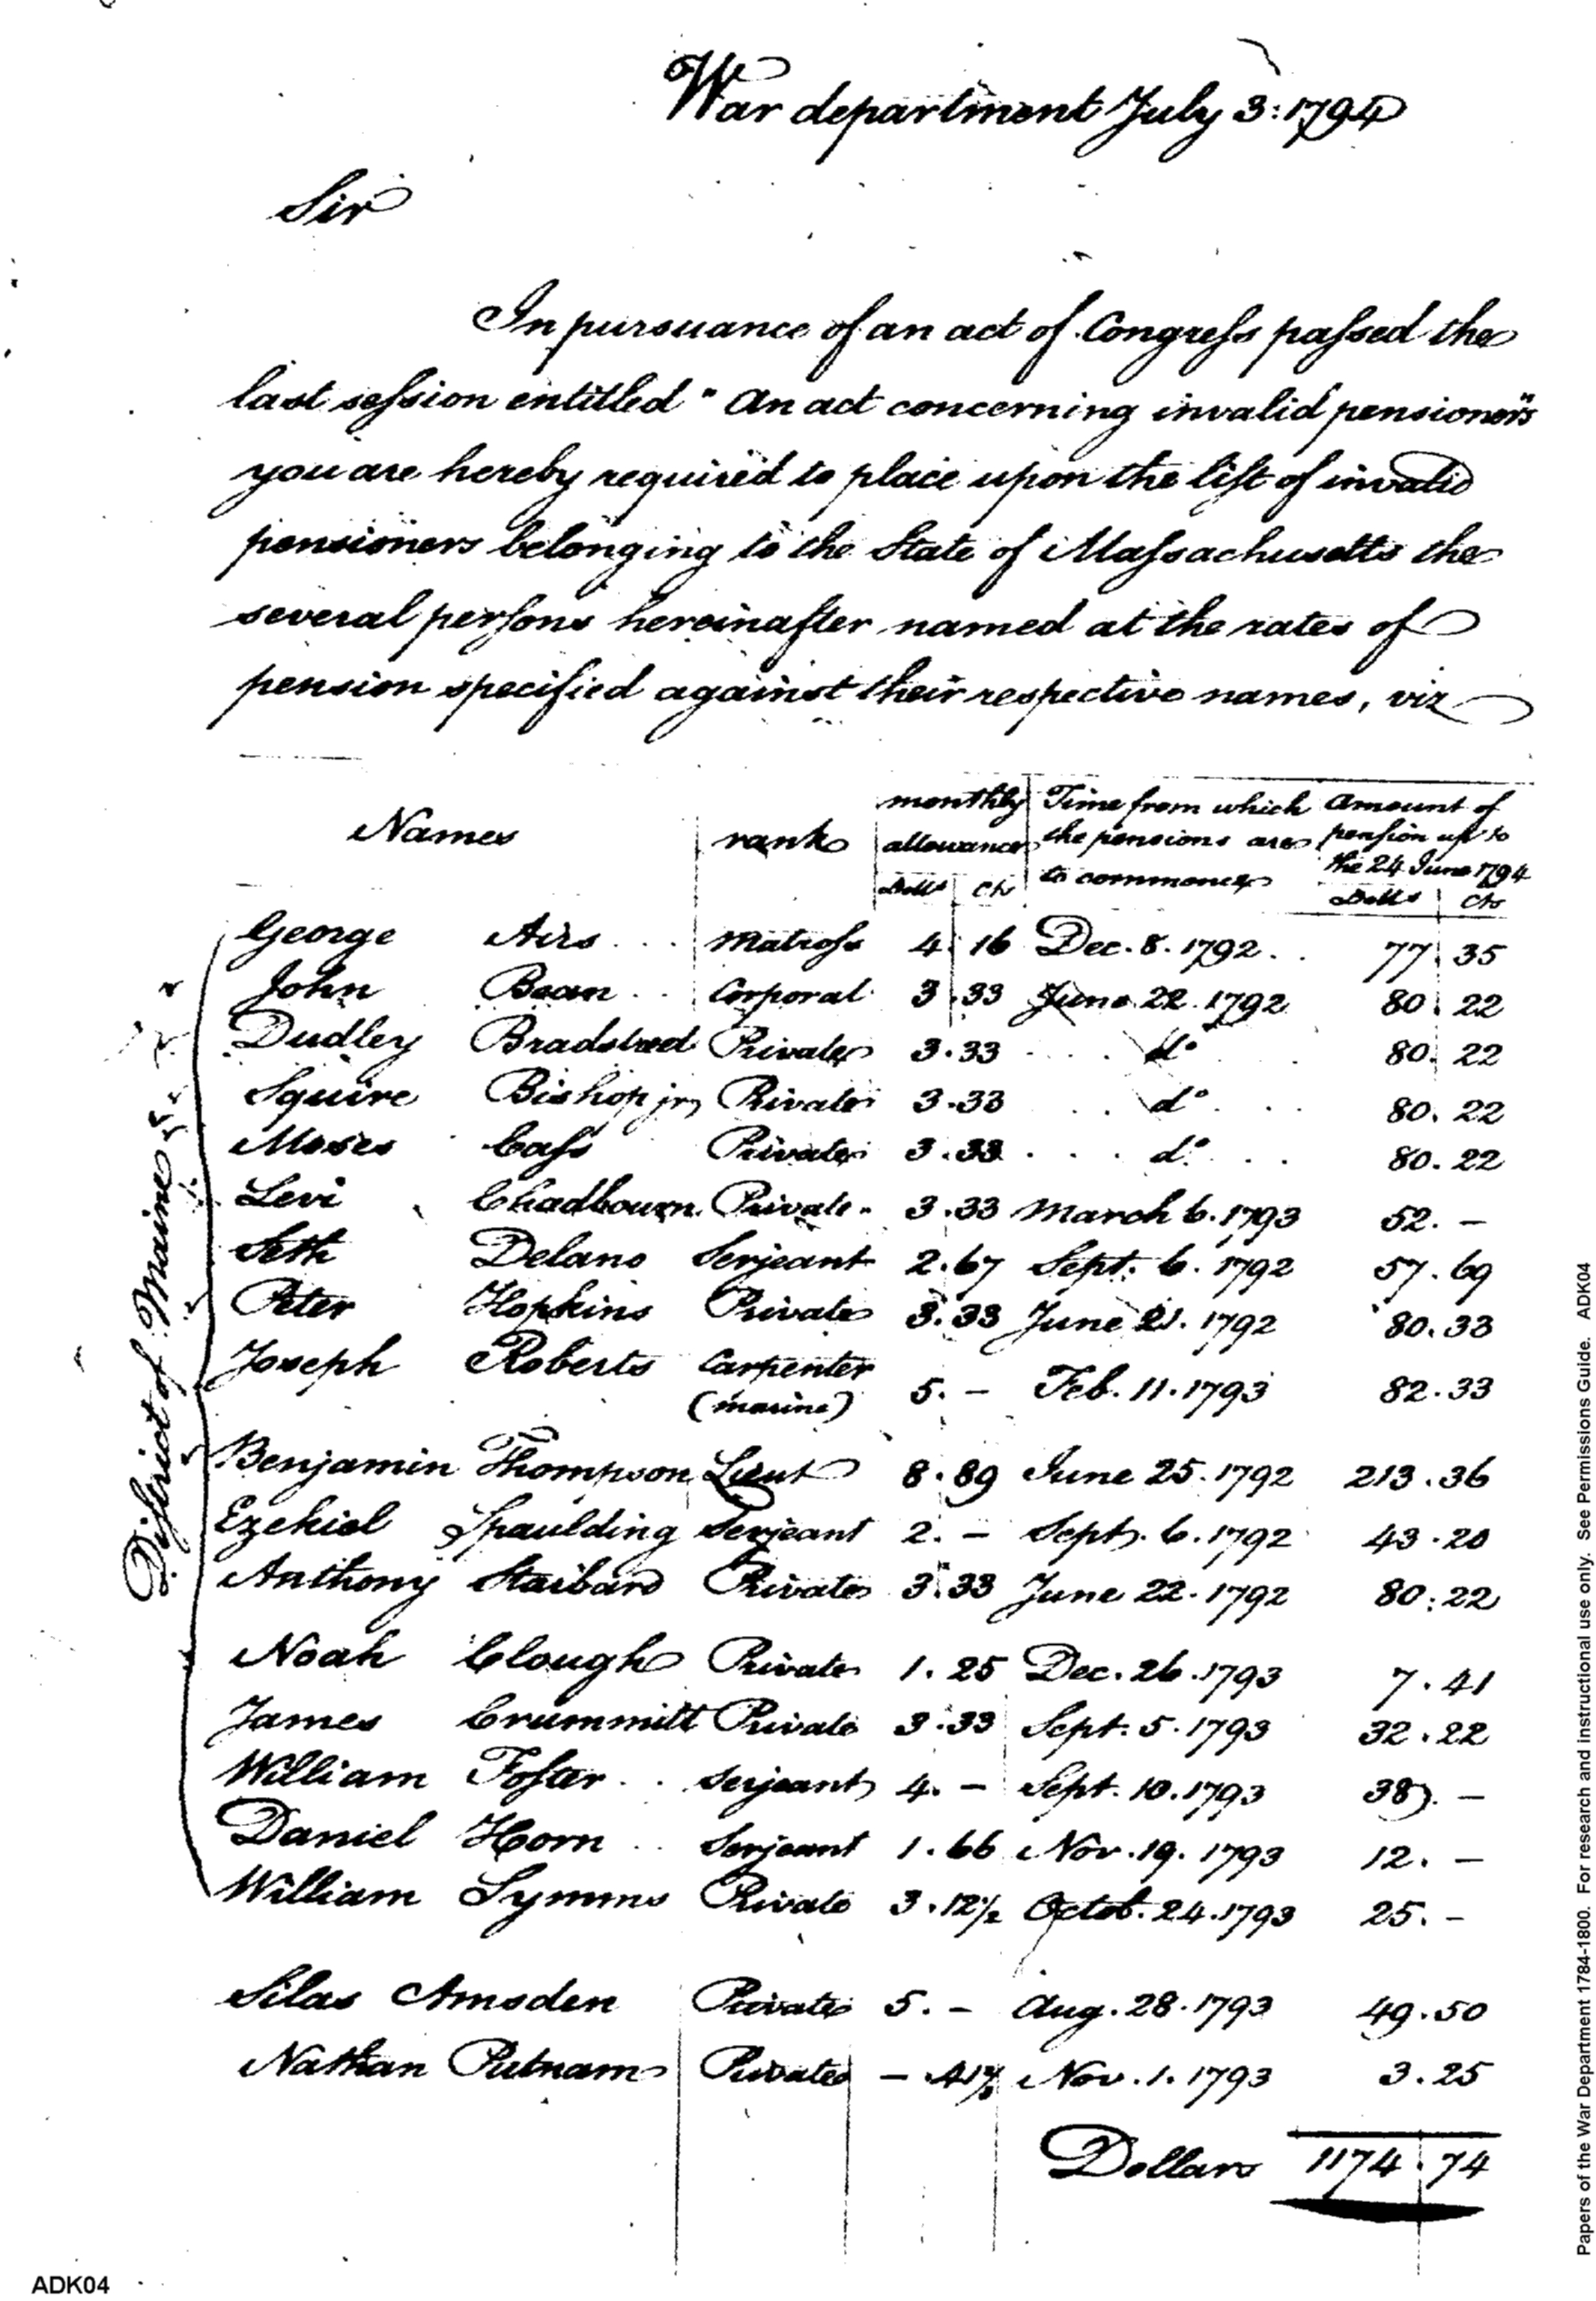 War department July 3: 1794
Sir
In pursuance of an act of Congress passed the
last session entitled "An act concerning invalid pensioners"
you are hereby required to place upon the list of invalid
pensioners belonging to the State of Massachusetts the
several persons hereinafter named at the rates of
pension specified against their respective names, viz
Names rank monthly allowance Dolls Cts Time from which the pensions are to commence Amount of pension up to the 24 June 1794 Dolls Cts
District of Maine
George Airs Matross 4 16 Dec. 8. 1792 77 35
John Bean Corporal 3 33 June 22. 1792 80 22
Dudley Bradstreed Private 3.33 do 80 22
Squire Bishop jr Private 3.33 do 80. 22
Moses Cass Private 3.33 do 80. 22
Levi Chadbourn Private 3.33 March 6. 1793 52. —
Seth Delano Serjeant 2.67 Sept. 6. 1792 57.69
Peter Hopkins Private 3.33 June 21. 1792 80.33
Joseph Roberts Carpenter (marine) 5. — Feb. 11. 1793 82.33
Benjamin Thompson Lieut 8.89 June 25. 1792 213.36
Ezekiel Spaulding Serjeant 2. — Sept. 6. 1792 43.20
Anthony Staibard Private 3.33 June 22. 1792 80.22
Noah Clough Private 1.25 Dec. 26. 1793 7.41
James Crummitt Private 3.33 Sept. 5. 1793 32.22
William Foster Serjeant 4. — Sept. 10. 1793 38. —
Daniel Horn Serjeant 1.66 Nov. 19. 1793 12. —
William Symms Private 3.12½ Octob. 24. 1793 25. —
Silas Amsden Private 5. — Aug. 28. 1793 49.50
Nathan Putnam Private — Nov. 1. 1793 3.25
Dollars 1174.74
Papers of the War Department 1784-1800. For research and instructional use only. See Permissions Guide. ADK04
ADK04